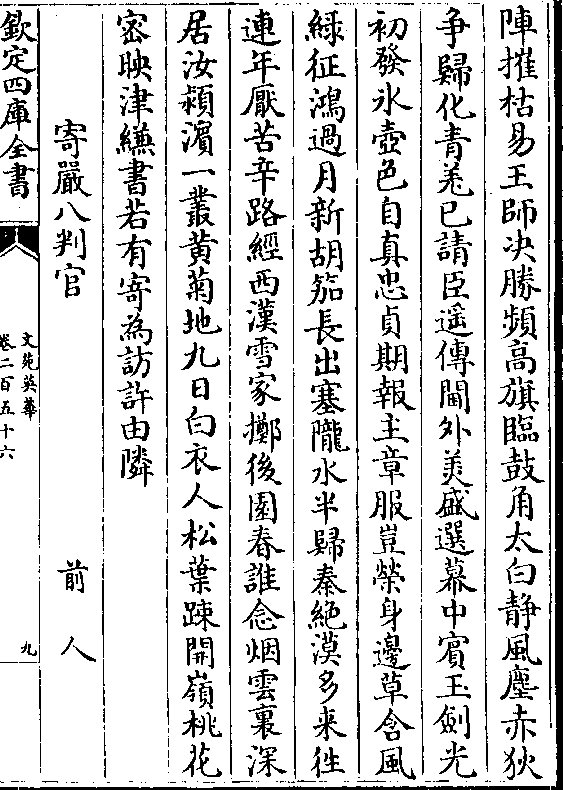 陣摧枯易王師决勝頻高旗臨鼓角太白静風塵赤狄
争歸化青羌已請臣遥傳閫外美盛選幕中賓玉劍光
初發氷壺色自真忠貞期報主章服豈榮身邊草含風
緑征鴻過月新胡笳長出塞隴水半歸秦絶漠多来徃
連年厭苦辛路經西漢雪家擲後園春誰念烟雲裏深
居汝潁濱一叢黄菊地九日白衣人松葉踈開嶺桃花
宻映津縑書若有寄為訪許由隣
寄嚴八判官 前人
欽定四庫全書
文苑英華
卷二百五十六
九